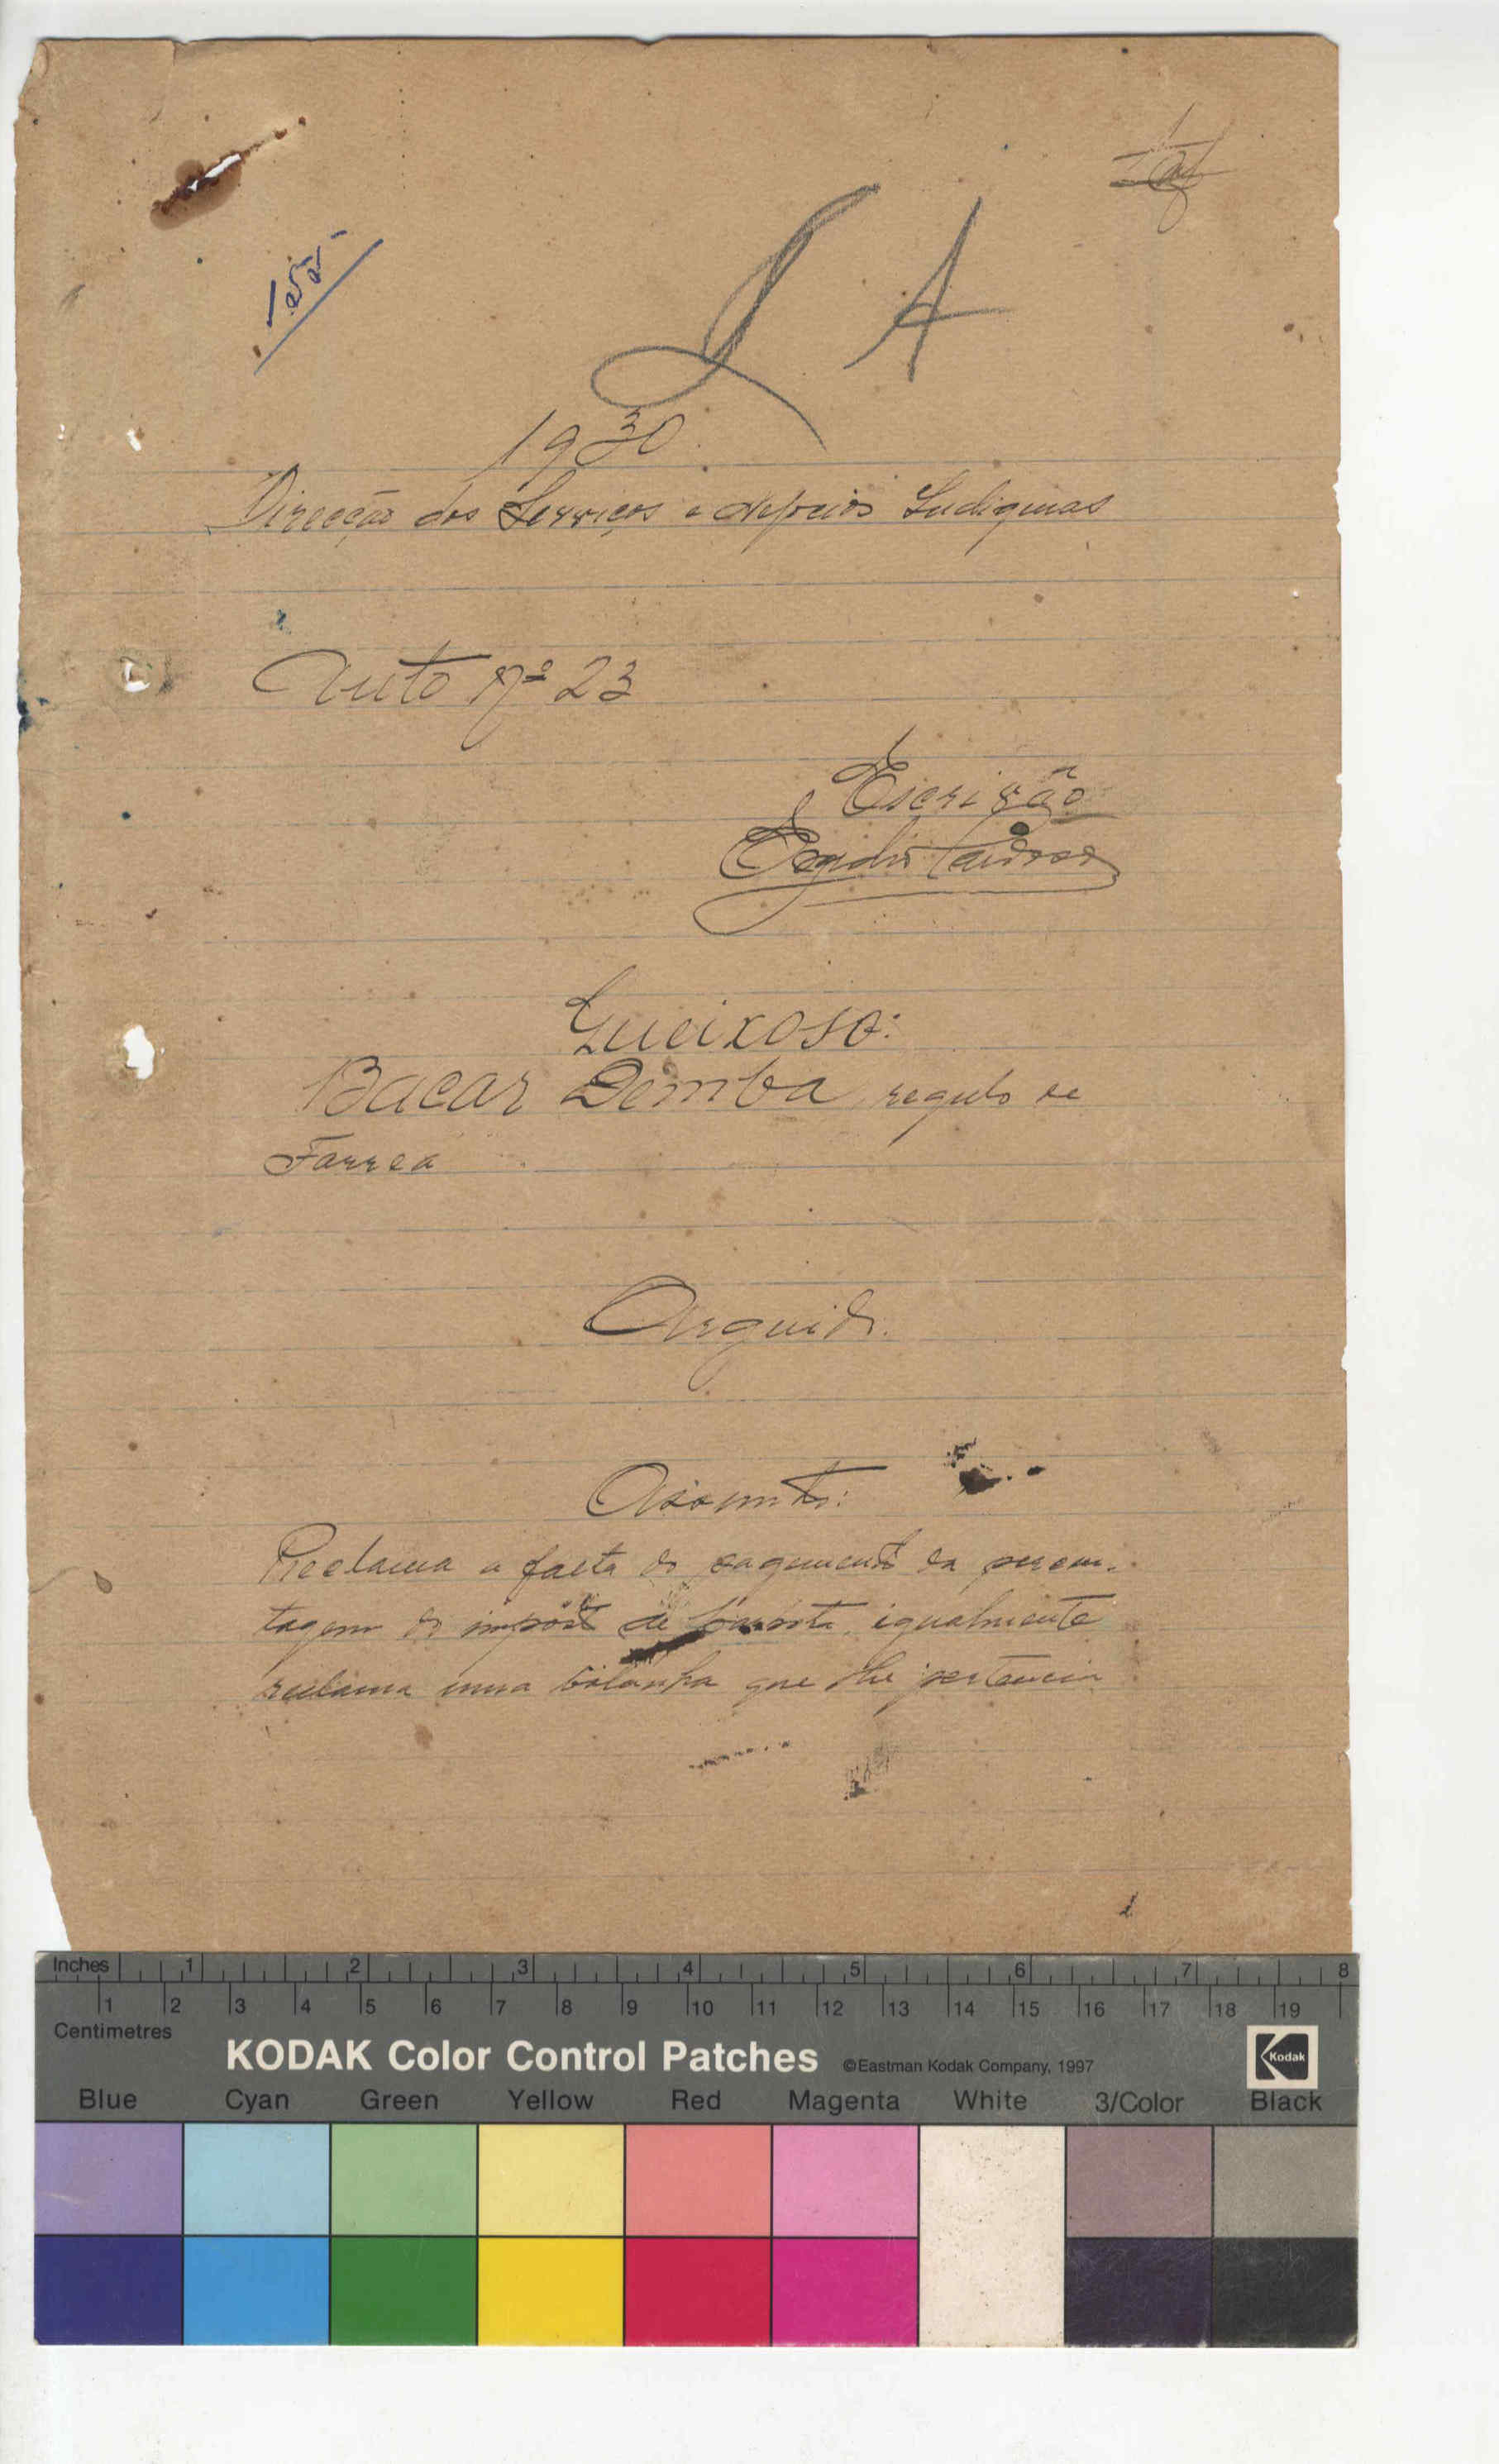 155
A
1930
Direcção dos Serviços e Negocios Indigenas
Auto Nº 23
Escrivão
Egidio Cardoso
Queixoso:
Bacar Demba, regulo de
Farrea
Arguido.
Assumto:
Reclama a falta do pagamento da percem-
tagem do imposto de palhota, igualmente
reclama uma bolanha que lhe pertencia
Inches 1 2 3 4 5 6 7 8
1 2 3 4 5 6 7 8 9 10 11 12 13 14 15 16 17 18 19
Centimetres
KODAK Color Control Patches ©Eastman Kodak Company, 1997 Kodak
Blue Cyan Green Yellow Red Magenta White 3/Color Black